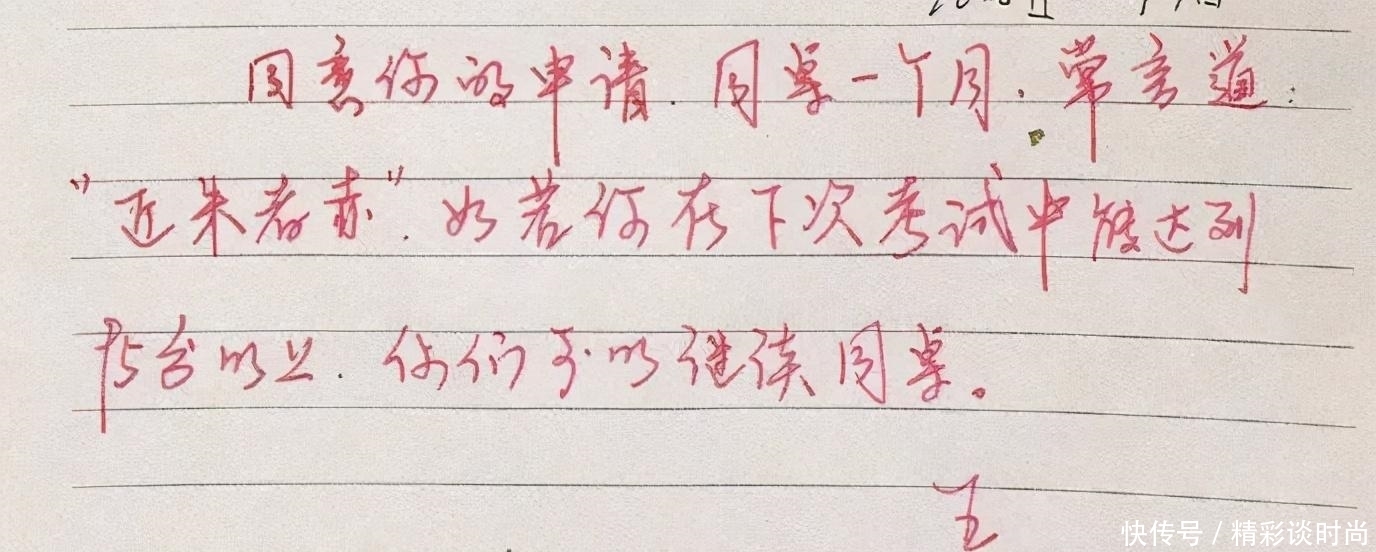 同意你的申请.同桌一个月.常言道:
"近朱者赤".如若你在下次考试中能达到
75分以上.你们可以继续同桌。
王
快传号/精彩谈时尚